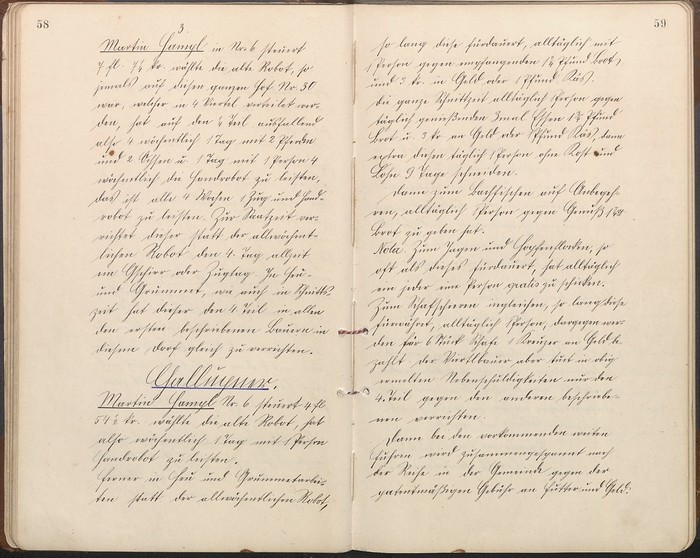 58
3.
Martin Hampl in Nr. 6 steuert
7 fl. 7½ kr. wählte die alte Robot, so
jemals auf diesen ganzen Hof Nr. 30
war, welcher in 4 Viertel verteilet wor-
den, hat auf den ¼ Teil ausfallend
also 4 wöchentlich 1 Tag mit 2 Pferden
und 2 Ochsen u. 1 Tag mit 1 Person 4
wöchentlich die Handrobot zu leisten,
das ist alle 4 Wochen 1 Zug und Hand-
robot zu leisten. Zur Saatzeit ver-
richtet dieser statt der allwöchent-
lichen Robot den 4. Tag allzeit
ein Gschirr oder Zugtag. In Heu-
und Grummet, wie auch in Schnitts-
zeit hat dieser den 4 Teil in allen
den ersten beschriebenen Bauern in
diesem Dorf gleich zu verrichten.
Chalupner.
Martin Hampl Nr. 6 steuert 4 fl.
54½ kr. wählte die alte Robot, hat
also wöchentlich 1 Tag mit 1 Person
Handrobot zu leisten.
Ferner in Heu und Grummetarbei-
ten statt der allwöchentlichen Robot,
59
so lang diese fürdauert, alltäglich mit
1 Person gegen empfangenden 1½ Pfund Brot,
und 3 kr. in Geld oder 1 Pfund Käs.
Die ganze Schnittzeit alltäglich 1 Person gegen
täglich genießenden 3mal Essen 1½ Pfund
Brot u. 3 kr. an Geld oder 1 Pfund Käs, dann
extra diesen täglich 1 Person ohne Kost und
Lohn 9 Tage schneiden.
Dann zum Teichfischen auf Anbegeh-
ren, alltäglich 1 Person gegen Genuß
Brot zu geben hat.
Nota. Zum Jagen und Hopfenflocken, so
oft als dieses fürdauert, hat alltäglich
ein jeder eine Person gratis zu schicken.
Zum Schafscheren ingleichen, so lang diese
fürwährt, alltäglich 1 Person, dargegen wer-
den für 6 Stück Schafe 1 Kreuzer an Geld be-
zahlt. Der Viertlbauer aber tuet in obig
ermelten Nebenschuldigkeiten nur den
4. Teil gegen den anderen beschriebe-
nen verrichten.
Dann bei den vorkommenden weiten
Fuhren wird zusammengespannt nach
der Reihe in der Gemeinde gegen der
patentmäßigen Gebühr an Futter und Geld.